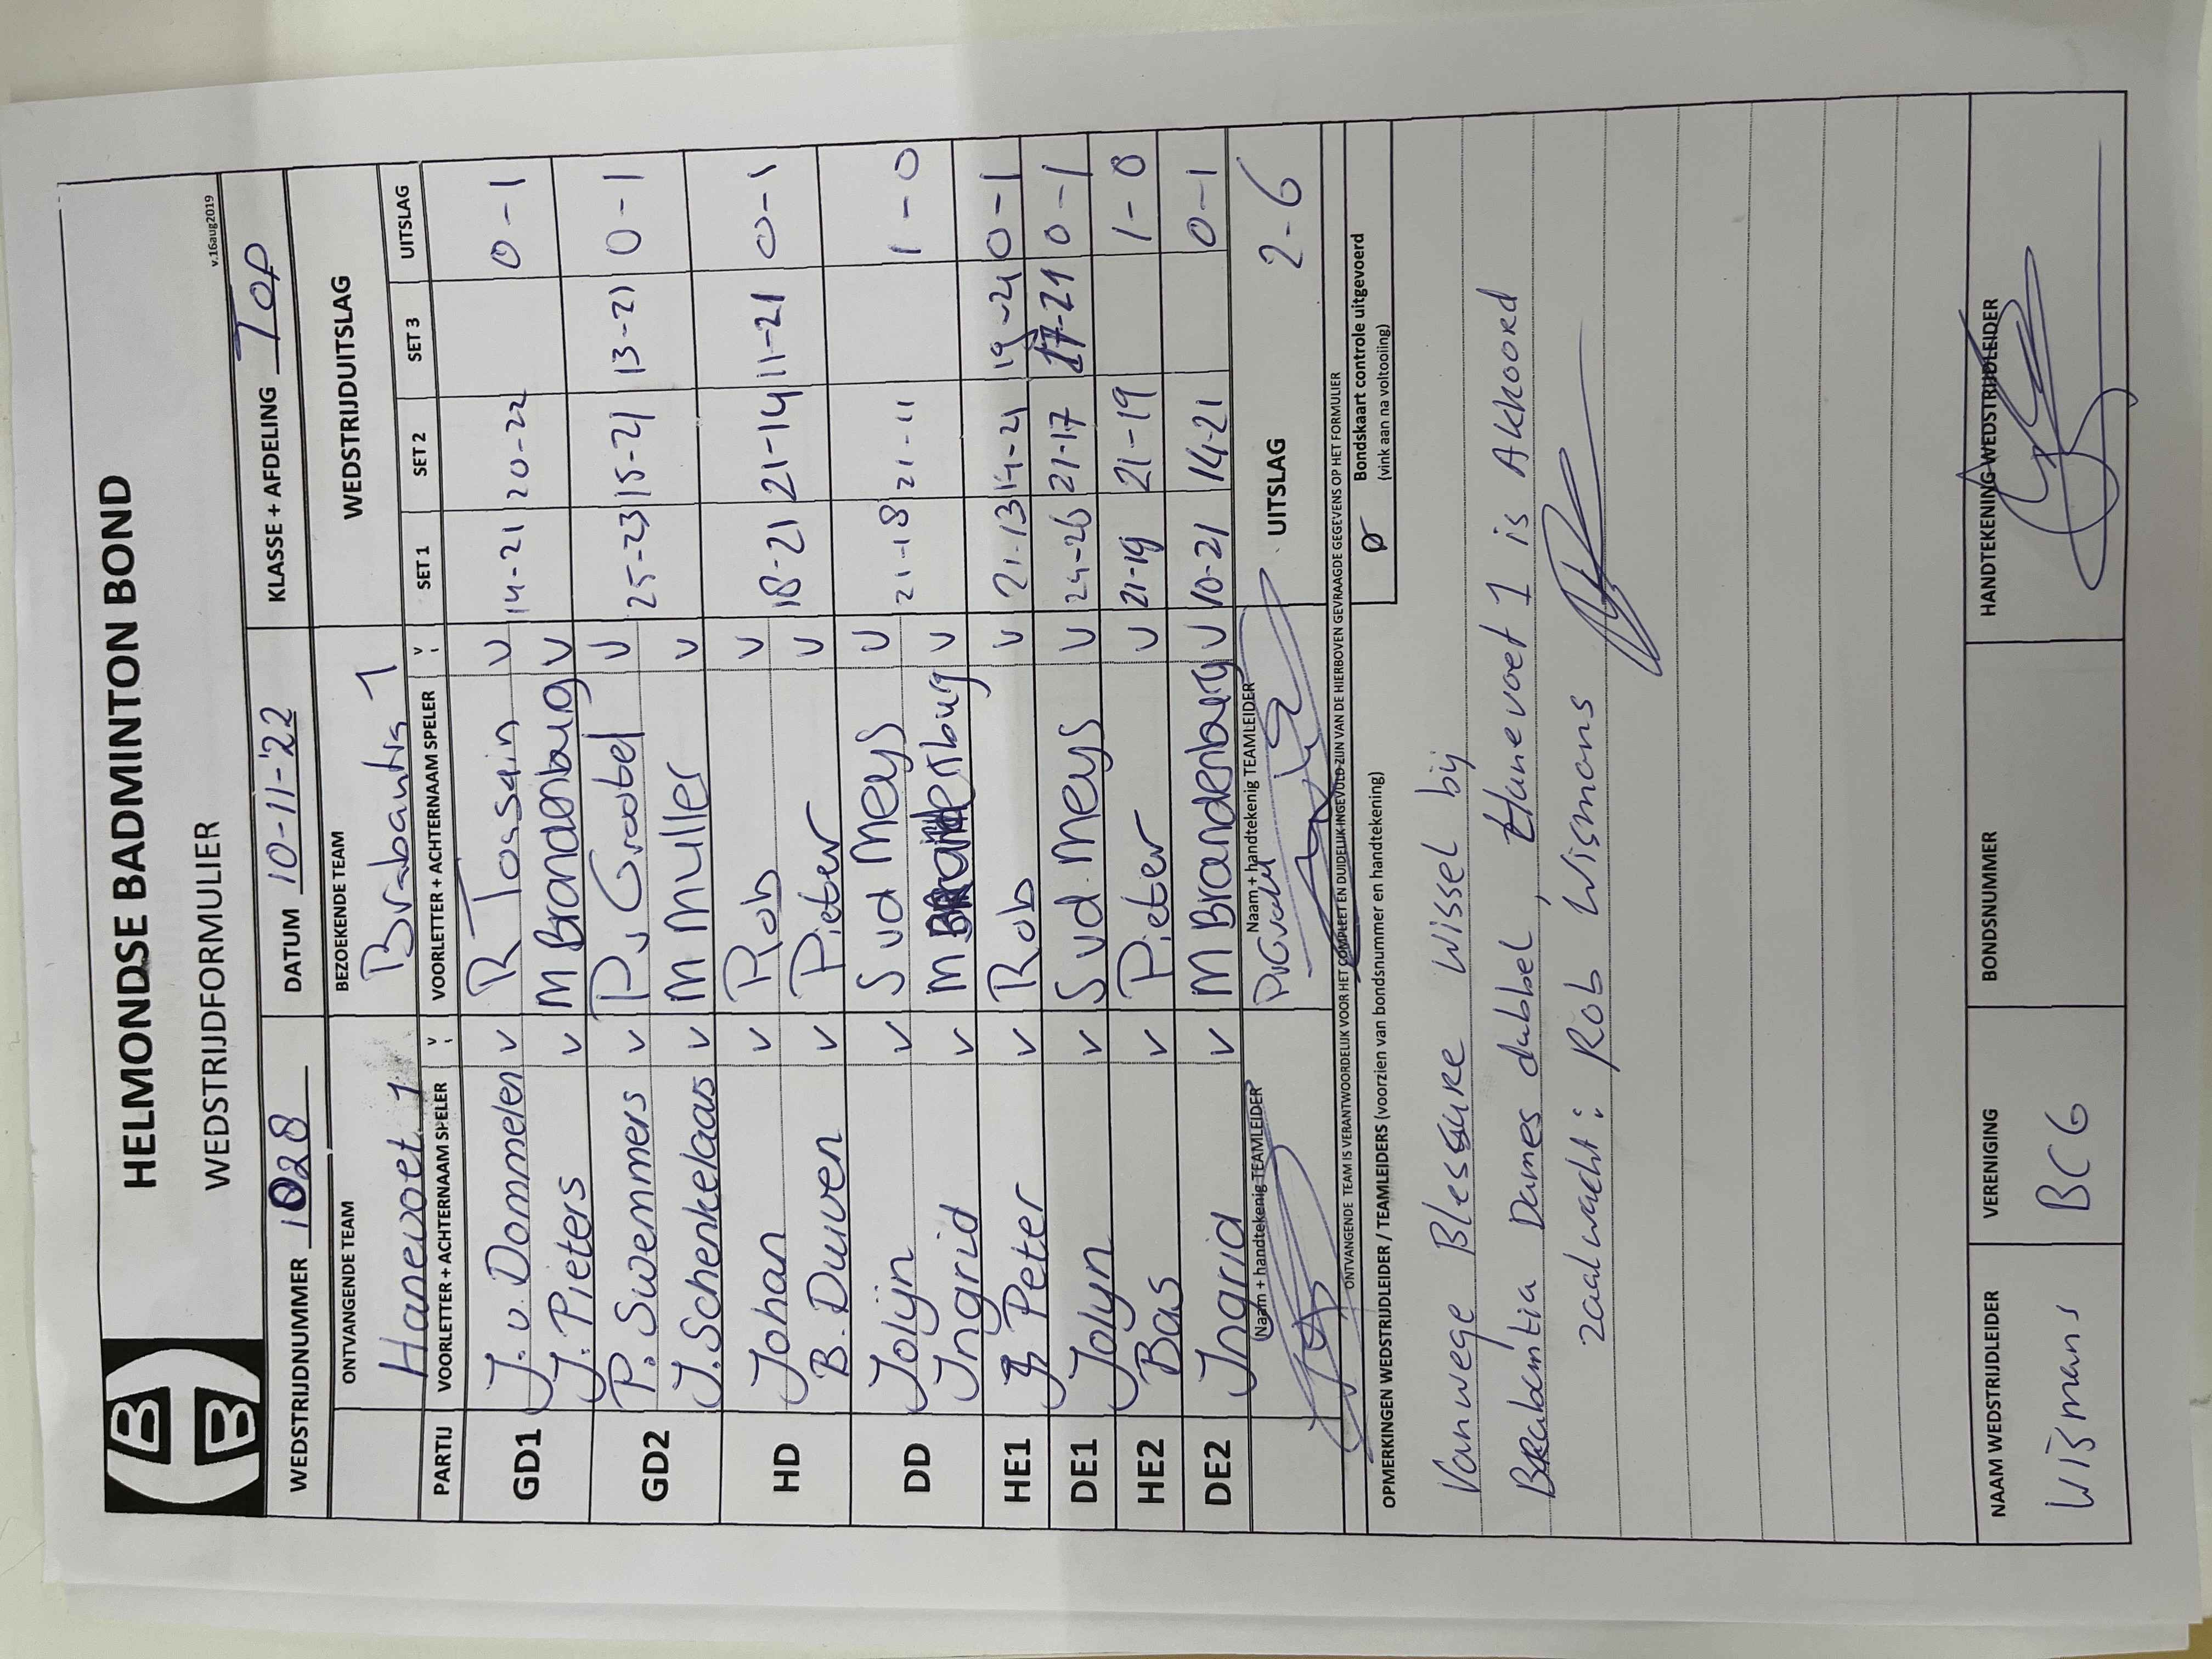 HELMONDSE BADMINTON BOND
WEDSTRIJDFORMULIER
v.16aug2019
WEDSTRIJDNUMMER 1028 DATUM 10-11-'22 KLASSE + AFDELING TOP
ONTVANGENDE TEAM BEZOEKENDE TEAM WEDSTRIJDUITSLAG
Hanevoet 1 Brabantia 1
PARTIJ VOORLETTER + ACHTERNAAM SPELER v VOORLETTER + ACHTERNAAM SPELER v SET 1 SET 2 SET 3 UITSLAG
GD1 J. v Dommelen v R Tossain v 14-21 20-22 0-1
J. Pieters v M Brandenburg v
GD2 P. Swemmers v P v Grootel v 25-23 15-21 13-21 0-1
J. Schenkelaas v M Muller v
HD Johan v Rob v 18-21 21-14 11-21 0-1
B. Duiven v Pieter v
DD Jolijn v S vd Meys v 21-18 21-11 1-0
Ingrid v M v
HE1 Peter v Rob v 21-13 14-21 19-21 0-1
DE1 Jolyn v S vd Meys v 24-26 21-17 17-21 0-1
HE2 Bas v Pieter v 21-19 21-19 1-0
DE2 Ingrid v M Brandenburg v 10-21 14-21 0-1
Naam + handtekenig TEAMLEIDER Naam + handtekenig TEAMLEIDER UITSLAG 2-6
ONTVANGENDE TEAM IS VERANTWOORDELIJK VOOR HET COMPLEET EN DUIDELIJK INGEVULD ZIJN VAN DE HIERBOVEN GEVRAAGDE GEGEVENS OP HET FORMULIER
OPMERKINGEN WEDSTRIJDLEIDER / TEAMLEIDERS (voorzien van bondsnummer en handtekening)
Bondskaart controle uitgevoerd
(vink aan na voltooiing)
Vanwege Blessure wissel bij
Brabantia Dames dubbel, Hanevoet 1 is Akkoord
zaalwacht: Rob Wijsmans
NAAM WEDSTRIJDLEIDER VERENIGING BONDSNUMMER HANDTEKENING WEDSTRIJDLEIDER
Wijsmans BCG